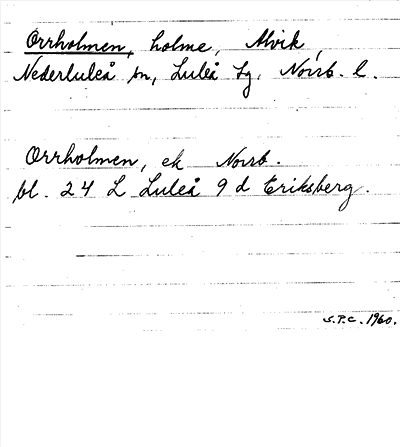 Orrholmen, holme, Alvik,
Nederluleå sn, Luleå tg. Norrb. l.
Orrholmen, ek Norrb.
bl. 24 L Luleå 9 d Eriksberg.
S.P.C. 1960.